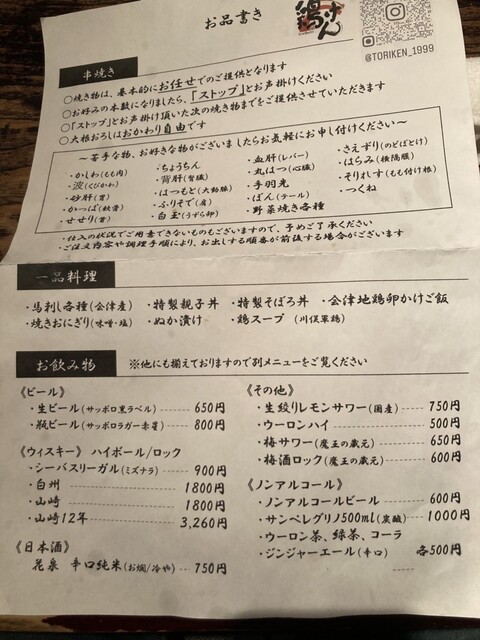 お品書き
鶏けん
@TORIKEN_1999
串焼き
○焼き物は、基本的にお任せでのご提供となります
○お好みの本数になりましたら、「ストップ」とお声掛けください
○「ストップ」とお声掛け頂いた次の焼き物までをご提供させていただきます
○大根おろしはおかわり自由です
～苦手な物、お好きな物がございましたらお気軽にお申し付けください～
・かしわ(もも肉) ・ちょうちん ・血肝(レバー) ・さえずり(のどぼとけ)
・波(くびかわ) ・背肝(腎臓) ・丸はつ(心臓) ・はらみ(横隔膜)
・砂肝(胃) ・はつもと(大動脈) ・手羽先 ・そりれす(もも付け根)
・かっぱ(軟骨) ・ふりそで(肩) ・ぼん(テール) ・つくね
・せせり(首) ・白玉(うずら卵) ・野菜焼き各種
・仕入の状況でご用意できないものもございますので、予めご了承ください
・ご注文内容や調理手順により、お出しする順番が前後する場合がございます
一品料理
・馬刺し各種(会津産) ・特製親子丼 ・特製そぼろ丼 ・会津地鶏卵かけご飯
・焼きおにぎり(味噌・塩) ・ぬか漬け ・鶏スープ (川俣軍鶏)
お飲み物 ※他にも揃えておりますので別メニューをご覧ください
《ビール》
・生ビール(サッポロ黒ラベル) 650円
・瓶ビール(サッポロラガー赤星) 800円
《ウィスキー》 ハイボール/ロック
・シーバスリーガル(ミズナラ) 900円
・白州 1800円
・山崎 1800円
・山崎12年 3,260円
《日本酒》
花泉 辛口純米(お燗/冷や) 750円
《その他》
・生絞りレモンサワー(国産) 750円
・ウーロンハイ 500円
・梅サワー(魔王の蔵元) 650円
・梅酒ロック(魔王の蔵元) 600円
《ノンアルコール》
・ノンアルコールビール 600円
・サンペレグリノ500ml(炭酸) 1000円
・ウーロン茶、緑茶、コーラ
・ジンジャーエール(辛口) 各500円